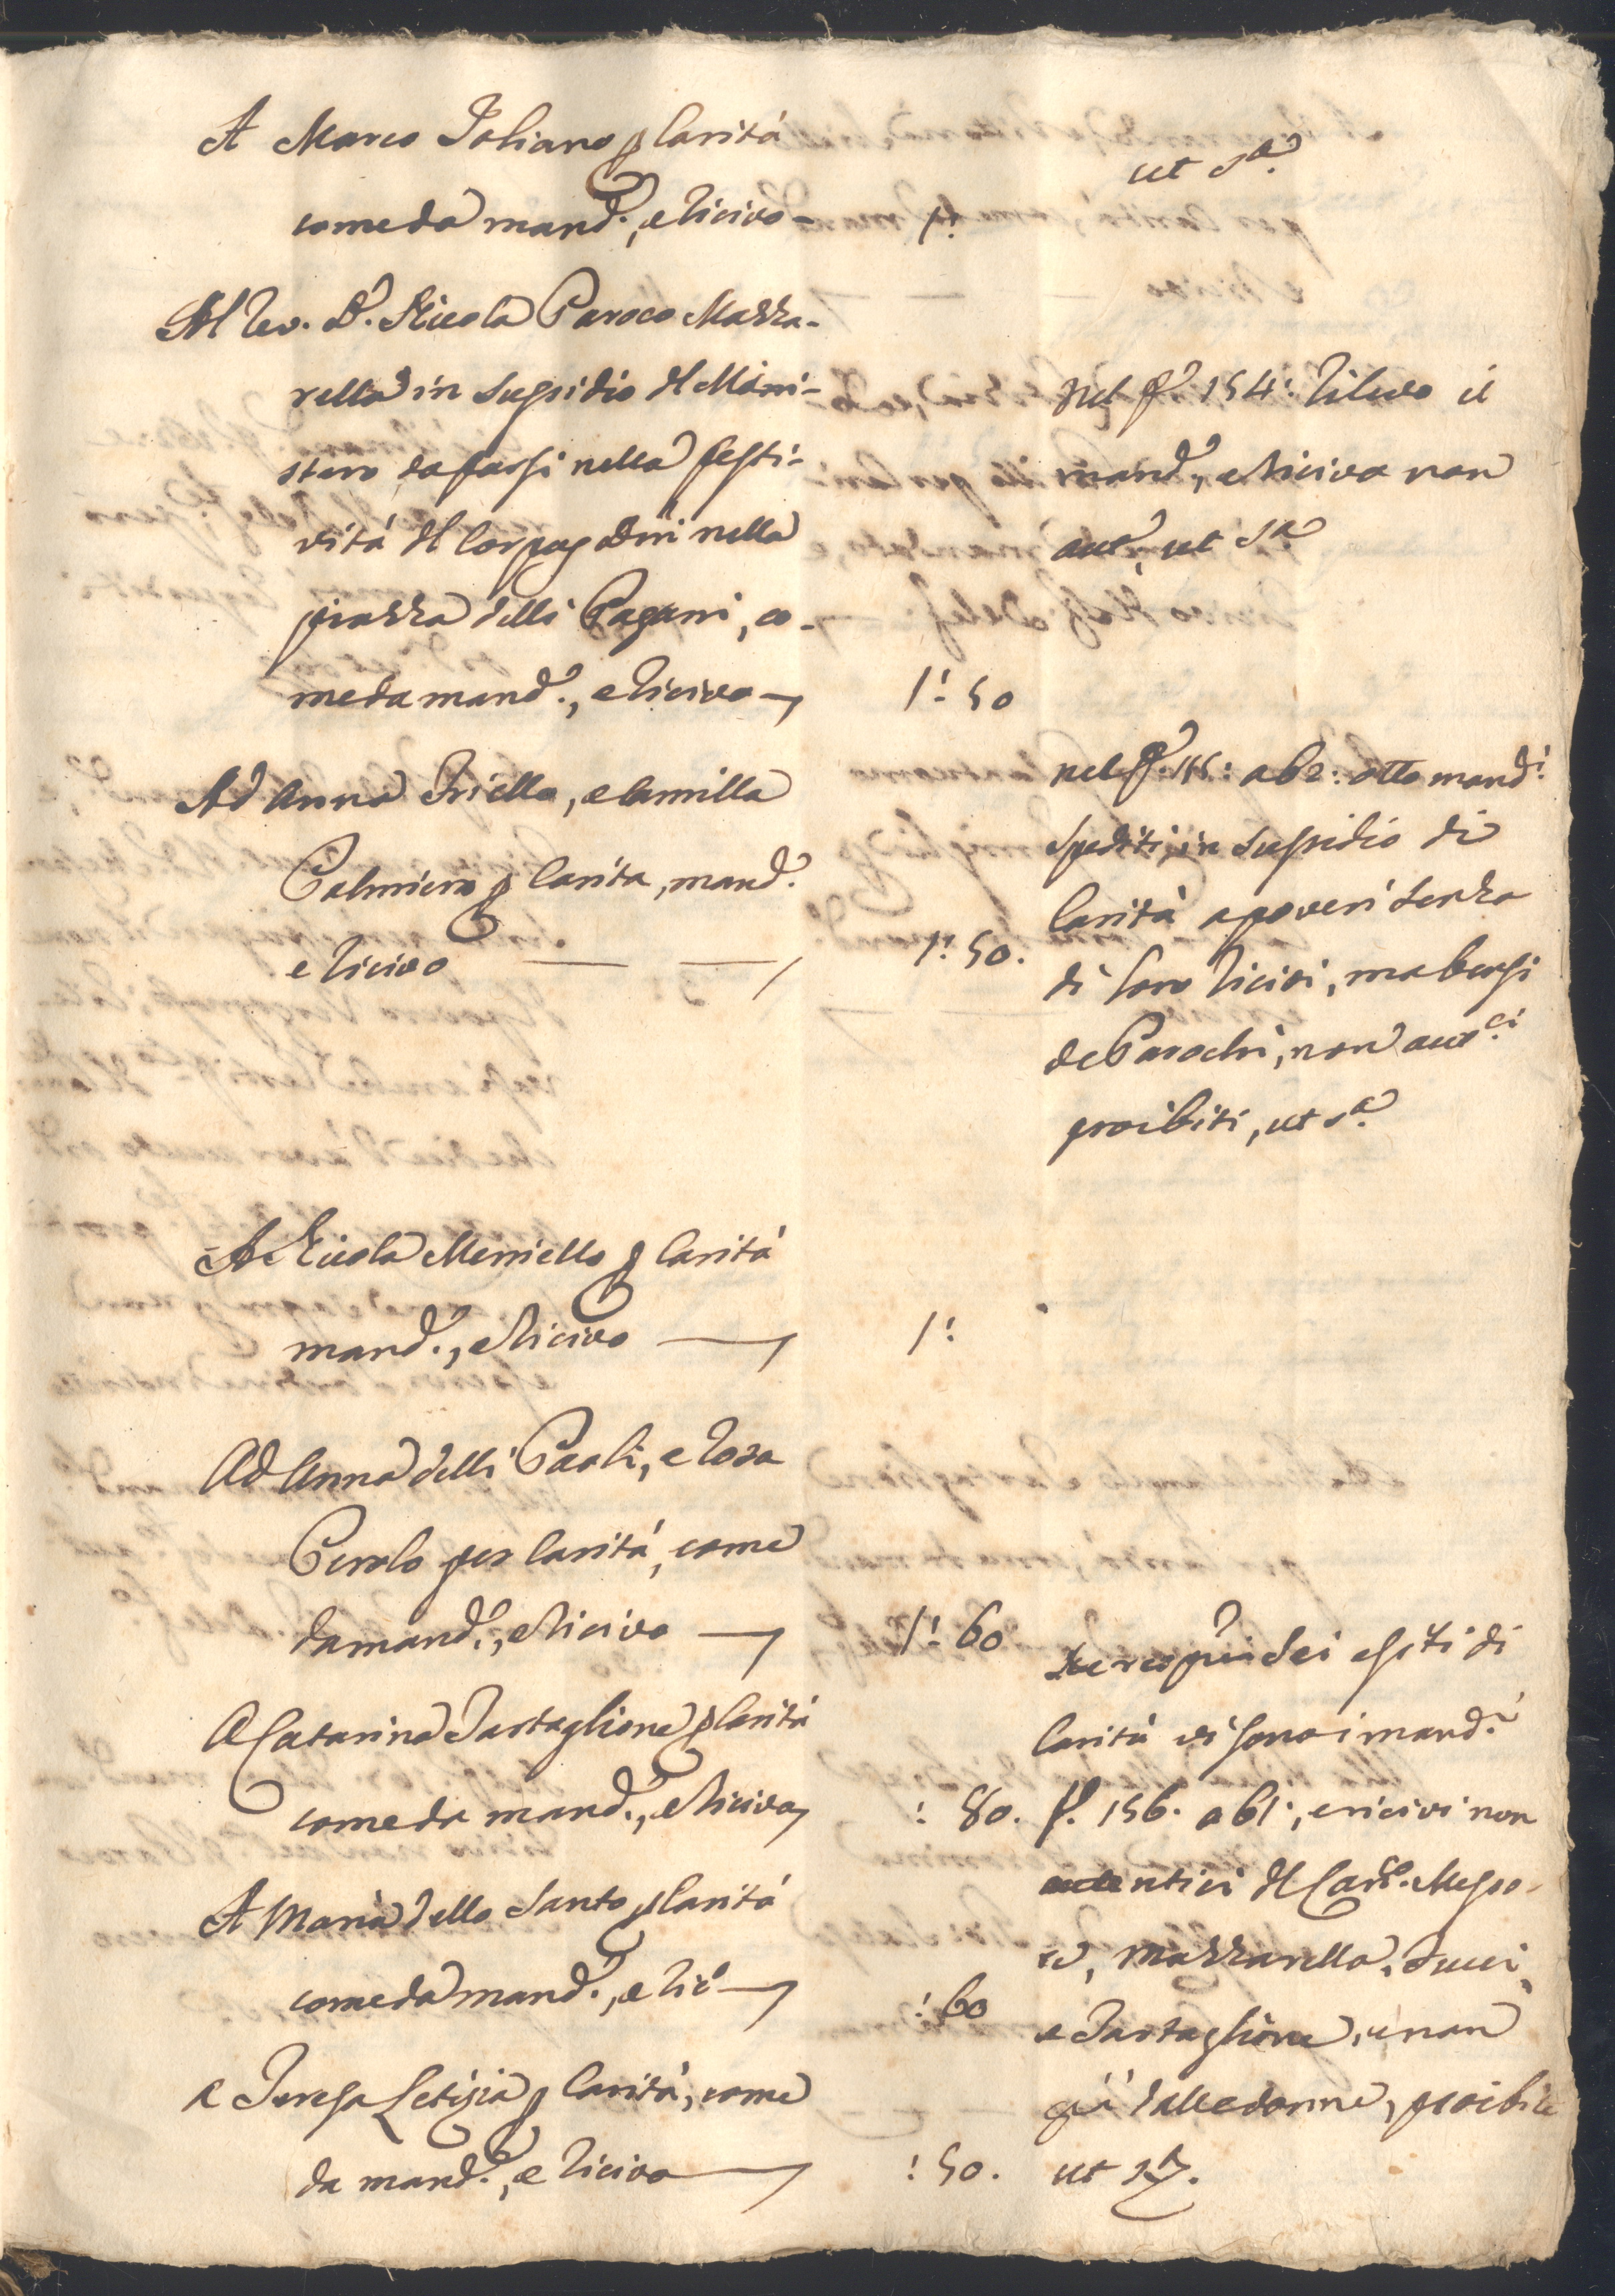 A Marco Foliano p Carità
come da mand.º, e ricivo - 1:
ut s.ª
Al Rev. D. Nicola Paroco Mazza-
rella in supsidio del Moni-
stero da farsi nella festi-
vità del Corpus Dñi nella
piazza delli Pagani, co-
me da mand.º, e ricivo 1: 50
nel f.º 154: rilevo il
mand.º, e ricivo non
aut.º, ut s.ª
Ad Anna Friello, e Camilla
Palmiero p Carita, mand.º
e ricivo 1: 50.
nel f.º 155: ab 2: otto mand.i
spediti in supsidio di
Carità a poveri senza
di loro ricivi, ma bensi
de Parochi, non aut.ci
proibiti, ut s.ª
A Nicola Merriello p Carità
mand.º, e ricivo 1:
Ad Anna delli Paoli, e Rosa
Perolo per Carità, come
da mand.º, e ricivo 1: 60
A Catarina Tartaglione p Carità
come da mand.º, e ricivo : 80.
A Maria dello Santo p Carità
come da mand.º, e ric.º : 60
A Teresa Letizia p Carità, come
da mand.º, e ricivo : 50.
sei esiti di
Carità vi sono i mand.i
f. 156. ab 1:, e ricivi non
autentici del
Mazzarella,
e Tartaglione, e non
già dalle donne, proibiti
ut s.ª